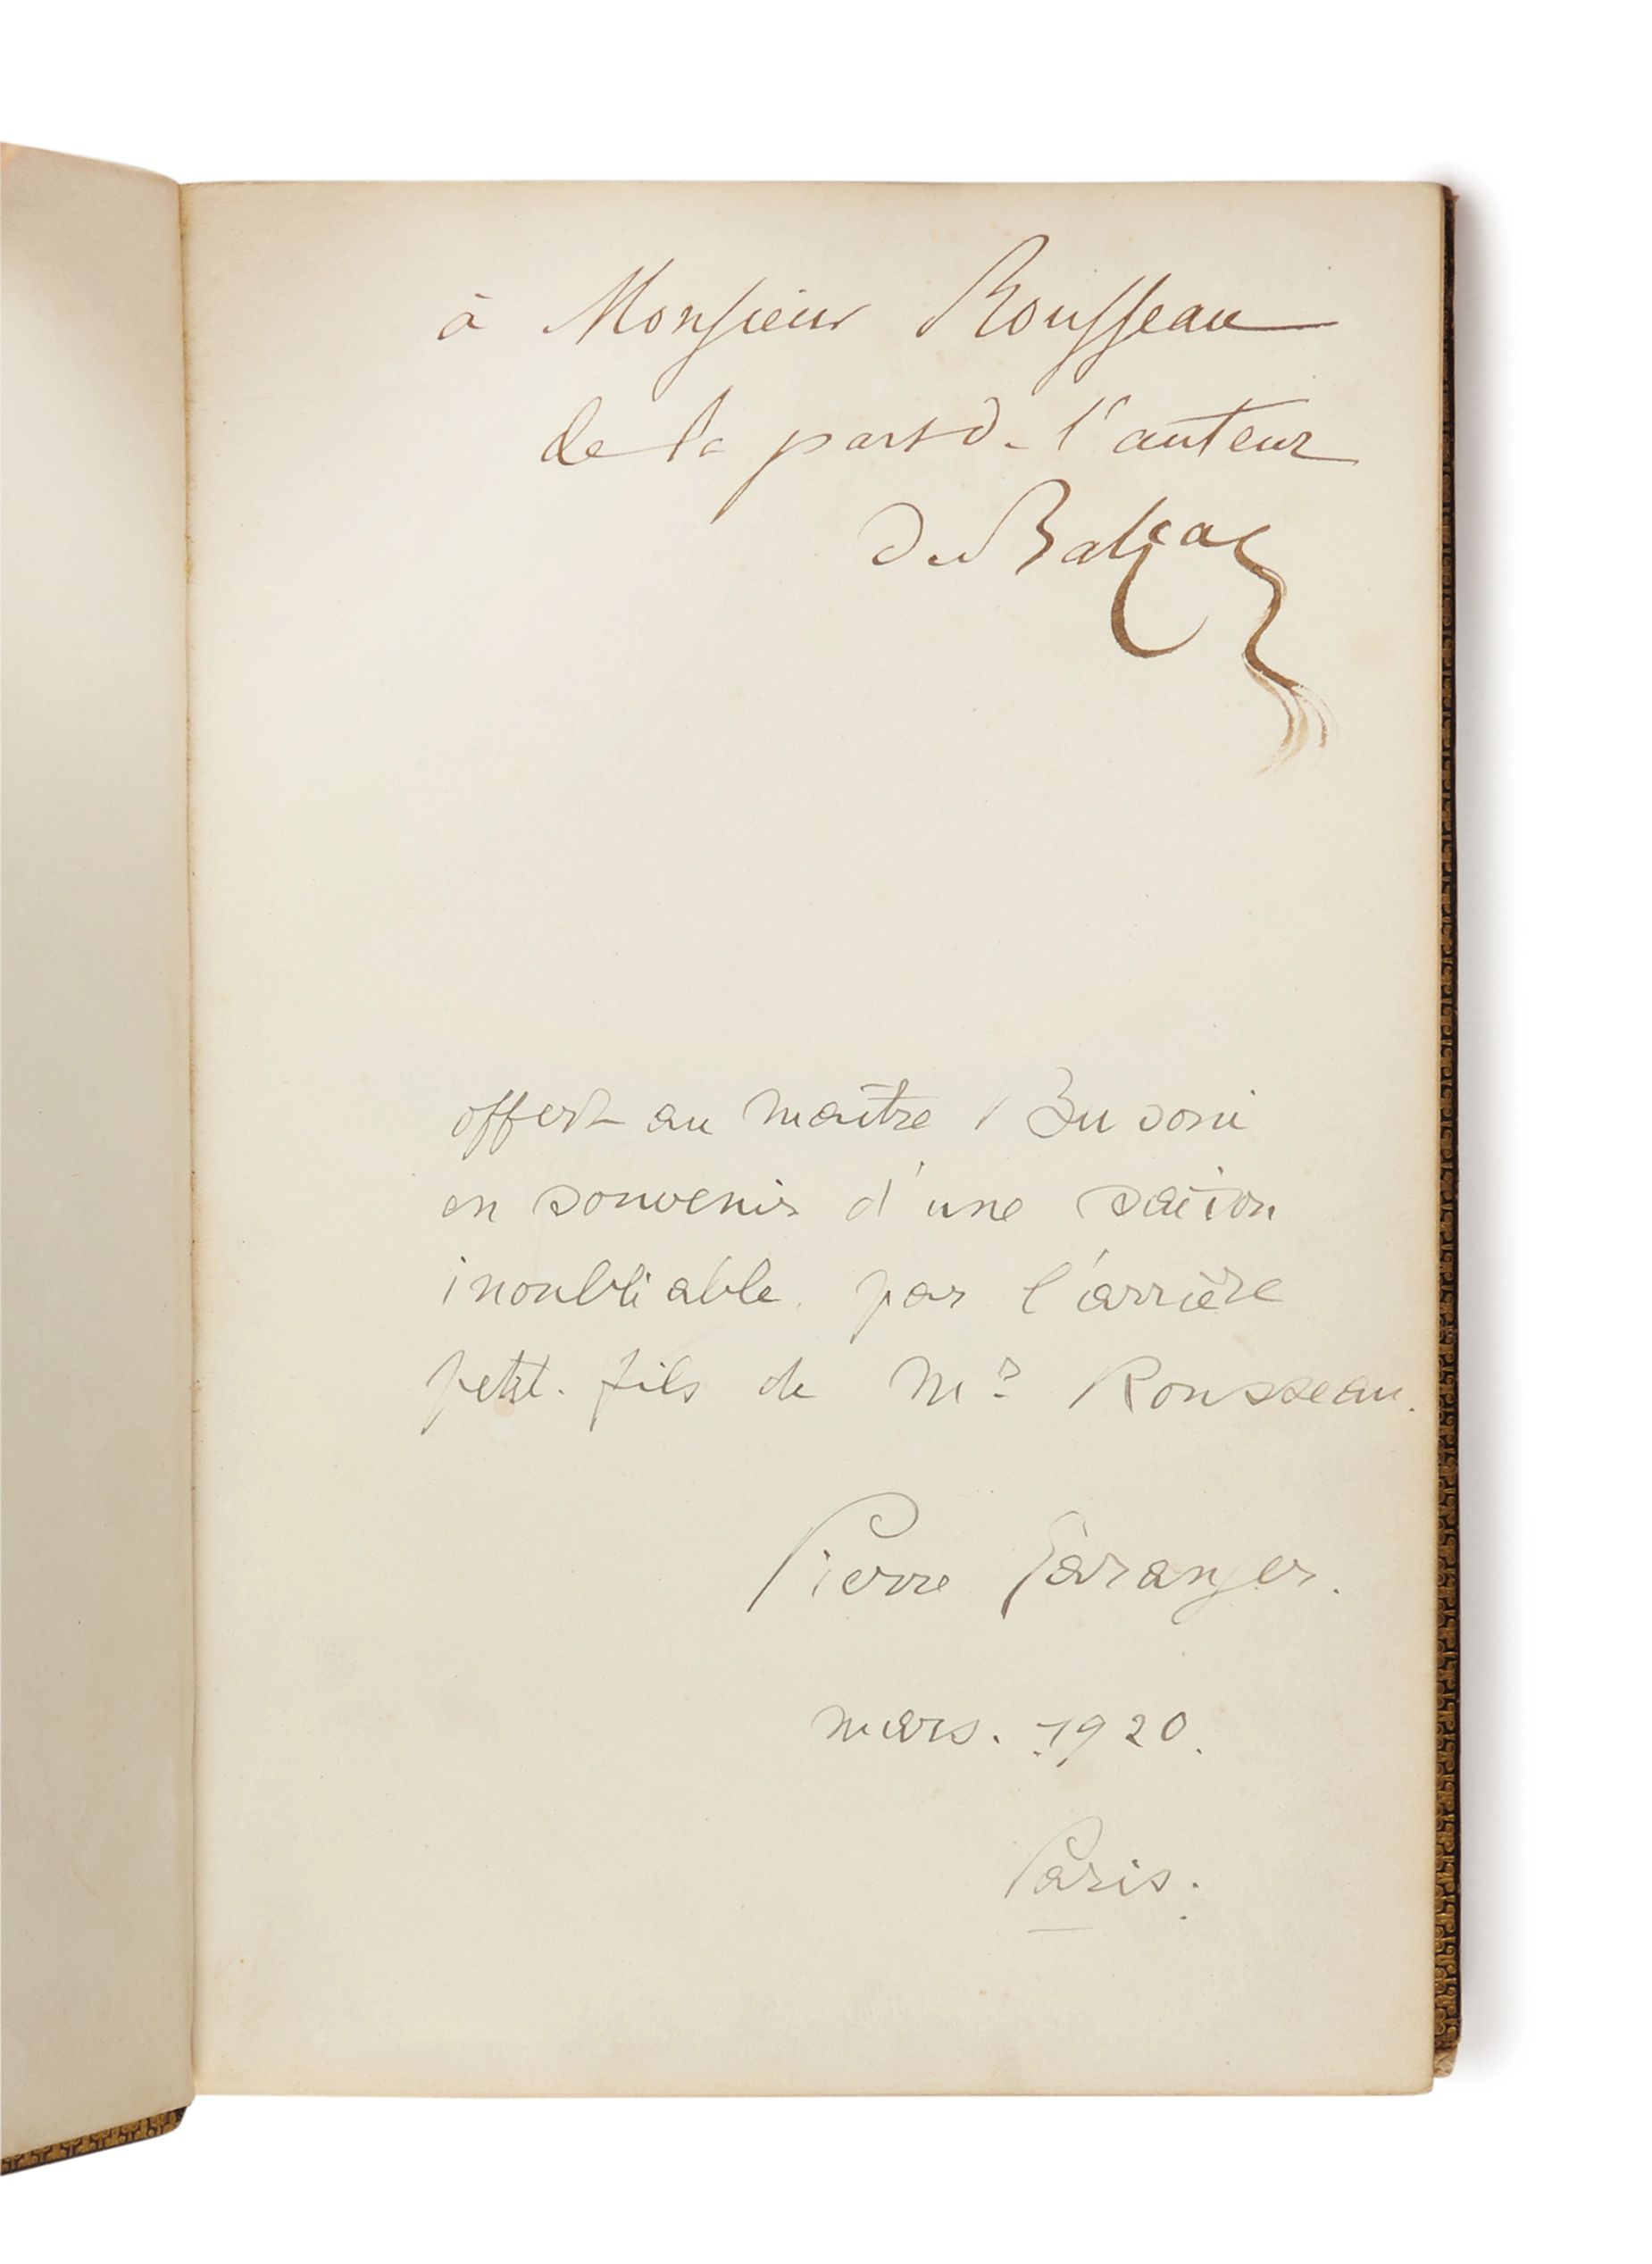 à Monsieur Rousseau
de la part de l'auteur
de Balzac
offert au maître Busoni
en souvenir d'une saison
inoubliable, par l'arrière
petit-fils de Mr Rousseau.
Pierre Garanger.
mars. 1920.
Paris.